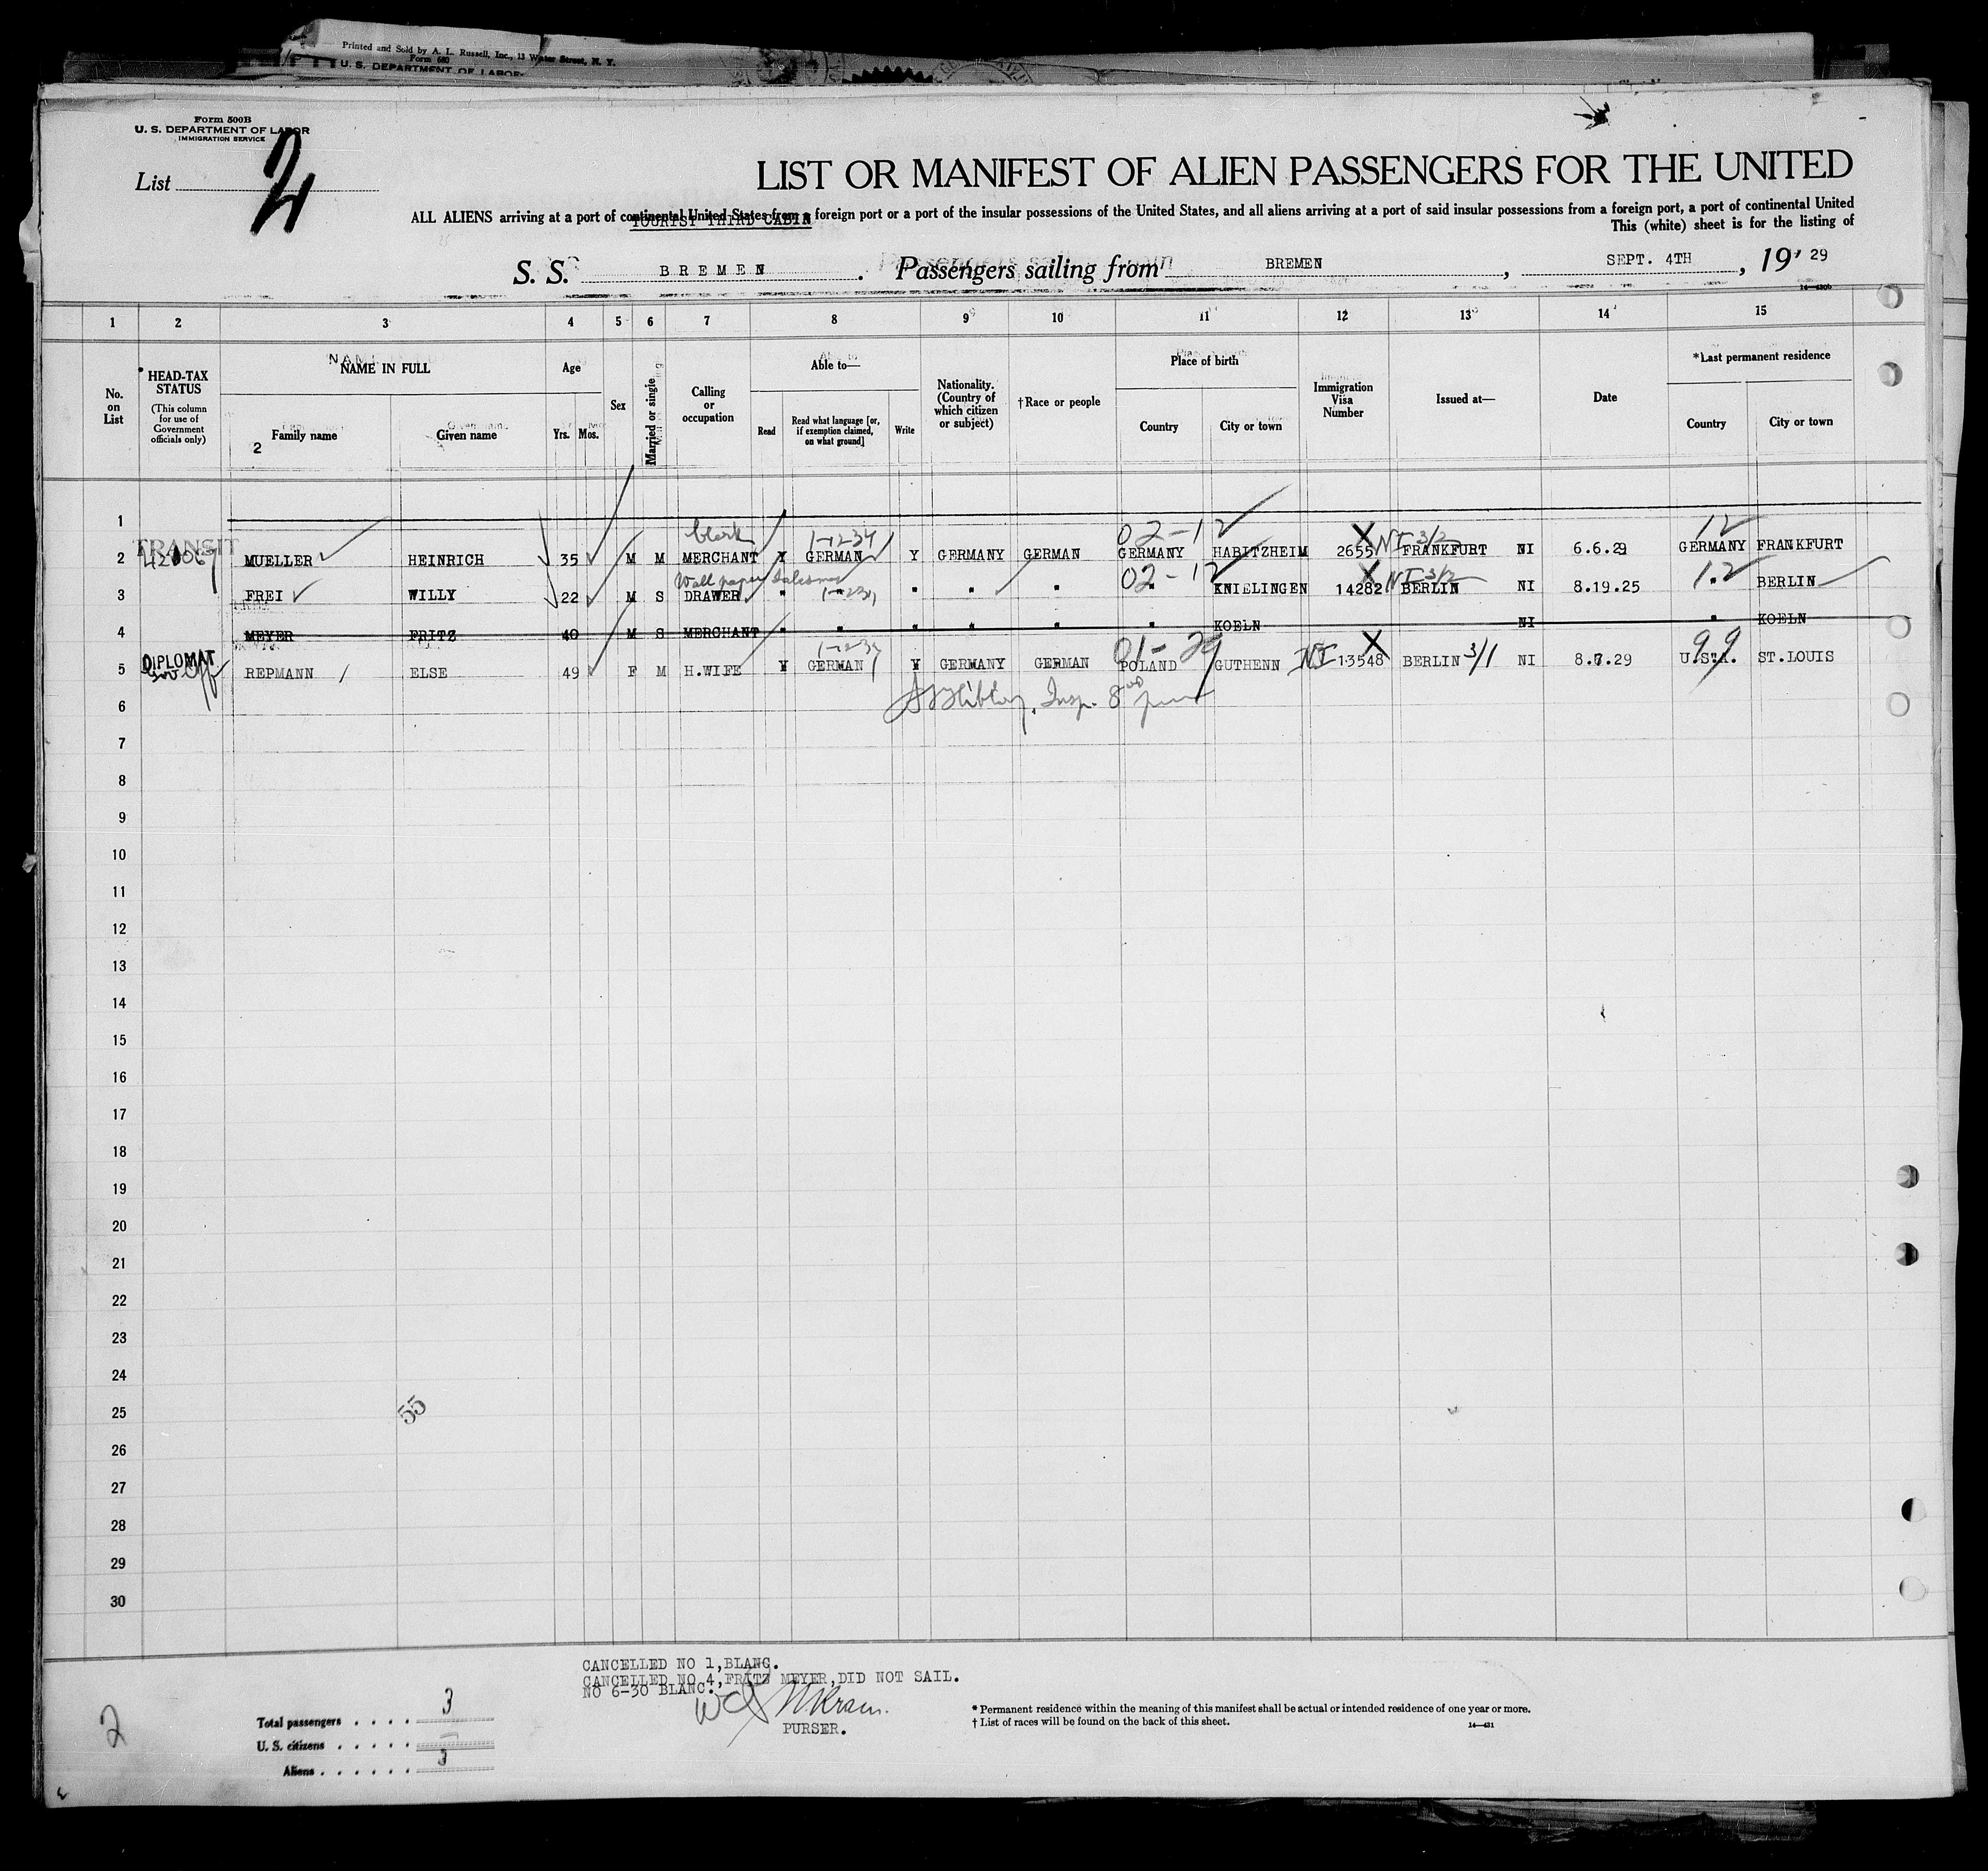 Printed and Sold by A. L. Russell, Inc., 13 Water Street, N. Y.
Form 680
U. S. DEPARTMENT OF LABOR
Form 500B
U. S. DEPARTMENT OF LABOR
IMMIGRATION SERVICE
List 2
LIST OR MANIFEST OF ALIEN PASSENGERS FOR THE UNITED
ALL ALIENS arriving at a port of continental United States from a foreign port or a port of the insular possessions of the United States, and all aliens arriving at a port of said insular possessions from a foreign port, a port of continental United
TOURIST THIRD CABIN
This (white) sheet is for the listing of
S. S. BREMEN. Passengers sailing from BREMEN, SEPT. 4TH, 19 29
14—430b
1 2 3 4 5 6 7 8 9 10 11 12 13 14 15
No. on List
HEAD-TAX STATUS
(This column for use of Government officials only)
NAME IN FULL
Family name
Given name
2
Age
Yrs. Mos.
Sex
Married or single
Calling or occupation
Able to—
Read
Read what language [or, if exemption claimed, on what ground]
Write
Nationality. (Country of which citizen or subject)
†Race or people
Place of birth
Country
City or town
Immigration Visa Number
Issued at—
Date
*Last permanent residence
Country
City or town
1
clerk 1-1234 02-12 X NI 3/2 12
TRANSIT
2 MUELLER HEINRICH 35 M M MERCHANT Y GERMAN Y GERMANY GERMAN GERMANY HABITZHEIM 2655 FRANKFURT NI 6.6.29 GERMANY FRANKFURT
Wall paper Salesman 02-12 X NI 3/2 12
3 FREI WILLY 22 M S DRAWER " " " " " " KNIELINGEN 14282 BERLIN NI 8.19.25 " BERLIN
4 MEYER FRITZ 40 M S MERCHANT " " " " " " KOELN NI " KOELN
01-29 X 99
DIPLOMAT
5 REPMANN ELSE 49 F M H.WIFE Y GERMAN Y GERMANY GERMAN POLAND GUTHENN NI 13548 BERLIN 3/1 NI 8.7.29 U.StA. ST.LOUIS
6 Insp. 8 00 pm
7
8
9
10
11
12
13
14
15
16
17
18
19
20
21
22
23
24
25
55
26
27
28
29
30
CANCELLED NO 1,BLANC.
CANCELLED NO 4,FRITZ MEYER,DID NOT SAIL.
NO 6-30 BLANC.
PURSER.
2
Total passengers . . . . 3
U. S. citizens . . . . . –
Aliens . . . . . . 3
* Permanent residence within the meaning of this manifest shall be actual or intended residence of one year or more.
† List of races will be found on the back of this sheet.
14—431